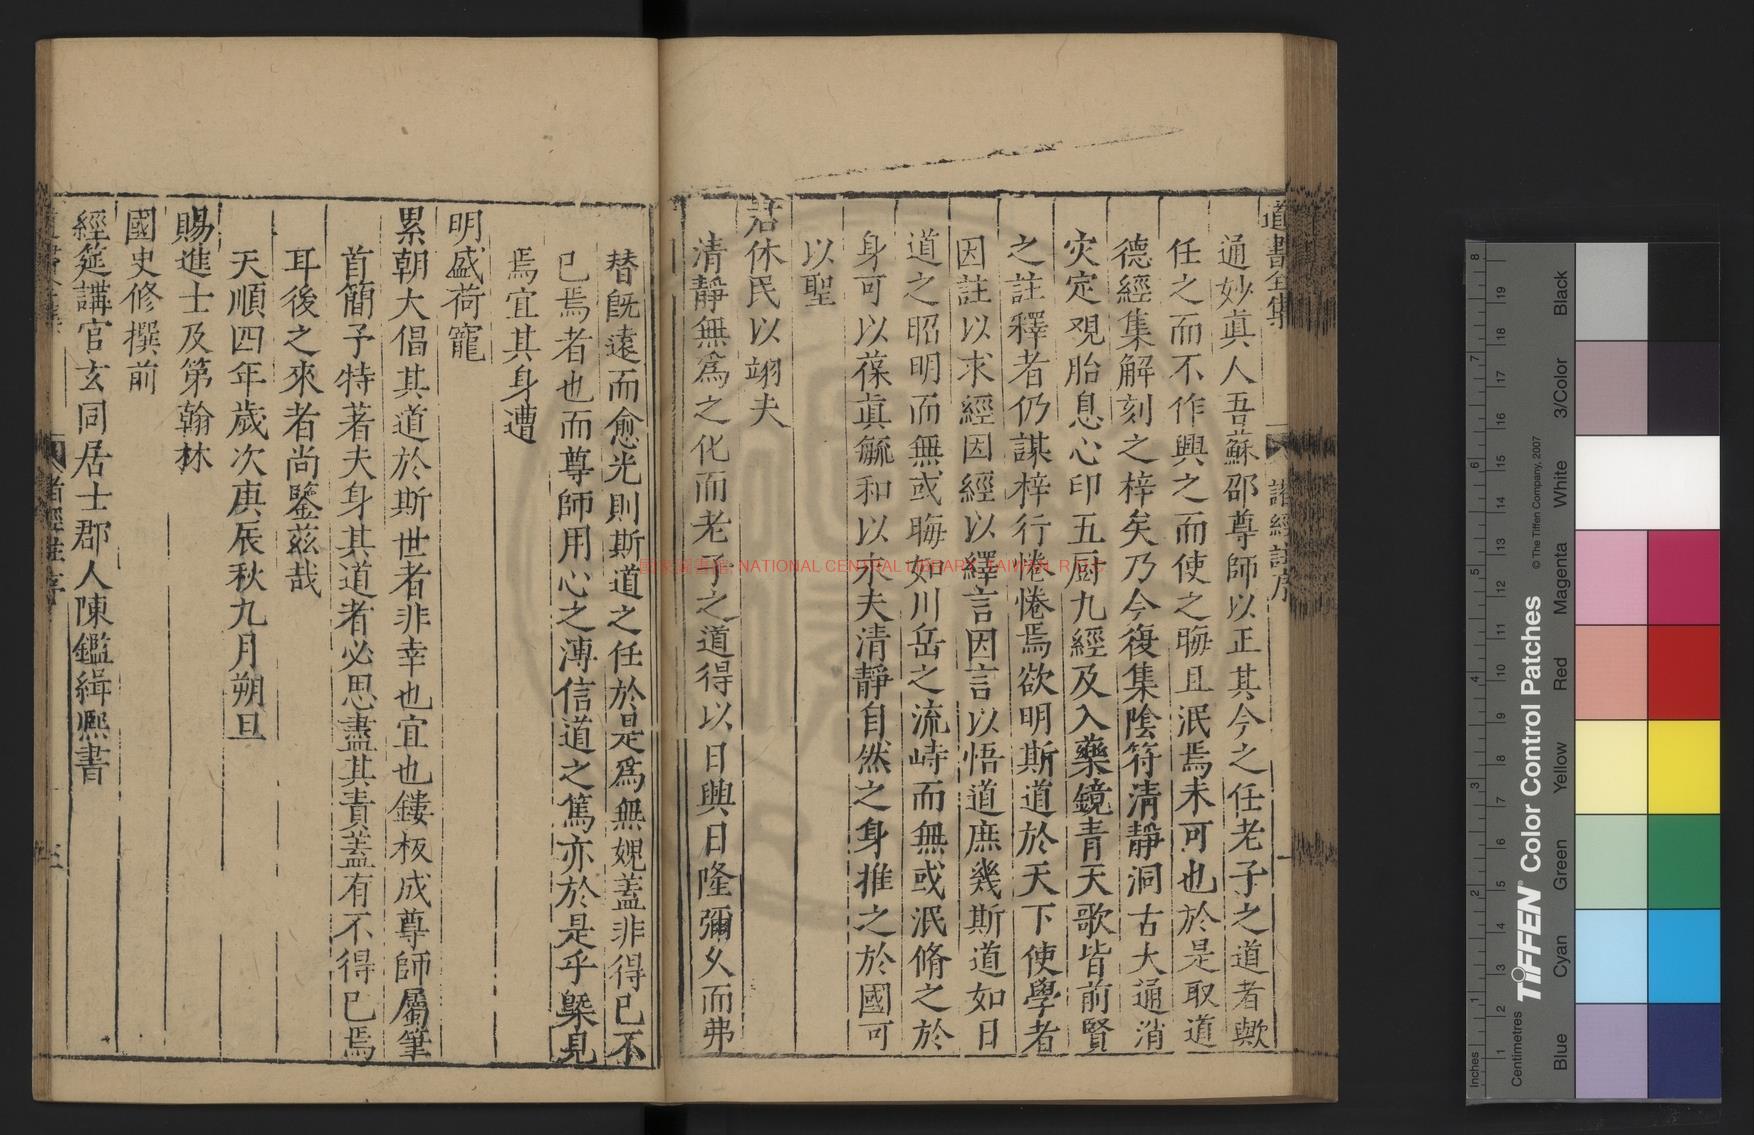 道書全集
諸經註序
通妙眞人吾蘇邵尊師以正其今之任老子之道者歟
任之而不作興之而使之晦且泯焉未可也於是取道
德經集解刻之梓矣乃今復集陰符清靜洞古大通消
灾定觀胎息心印五厨九經及入藥鏡青天歌皆前賢
之註釋者仍謀梓行惓惓焉欲明斯道於天下使學者
因註以求經因經以繹言因言以悟道庶幾斯道如日
道之昭明而無或晦如川岳之流峙而無或泯脩之於
身可以葆眞毓和以求夫清靜自然之身推之於國可
以聖
君休民以翊夫
清靜無爲之化而老子之道得以日興日隆彌久而弗
替旣遠而愈光則斯道之任於是爲無媿蓋非得已不
已焉者也而尊師用心之溥信道之篤亦於是乎槩見
焉宜其身遭
明盛荷寵
累朝大倡其道於斯世者非幸也宜也鏤板成尊師屬筆
首簡予特著夫身其道者必思盡其責蓋有不得已焉
耳後之來者尚鑒茲哉
天順四年歲次庚辰秋九月朔旦
賜進士及第翰林
國史修撰前
經筵講官玄同居士郡人陳鑑緝熈書
NATIONAL CENTRAL LIBRARY, TAIWAN, R.O.C
TIFFEN® Color Control Patches
© The Tiffen Company, 2007
Centimetres
Inches
Blue
Cyan
Green
Yellow
Red
Magenta
White
3/Color
Black